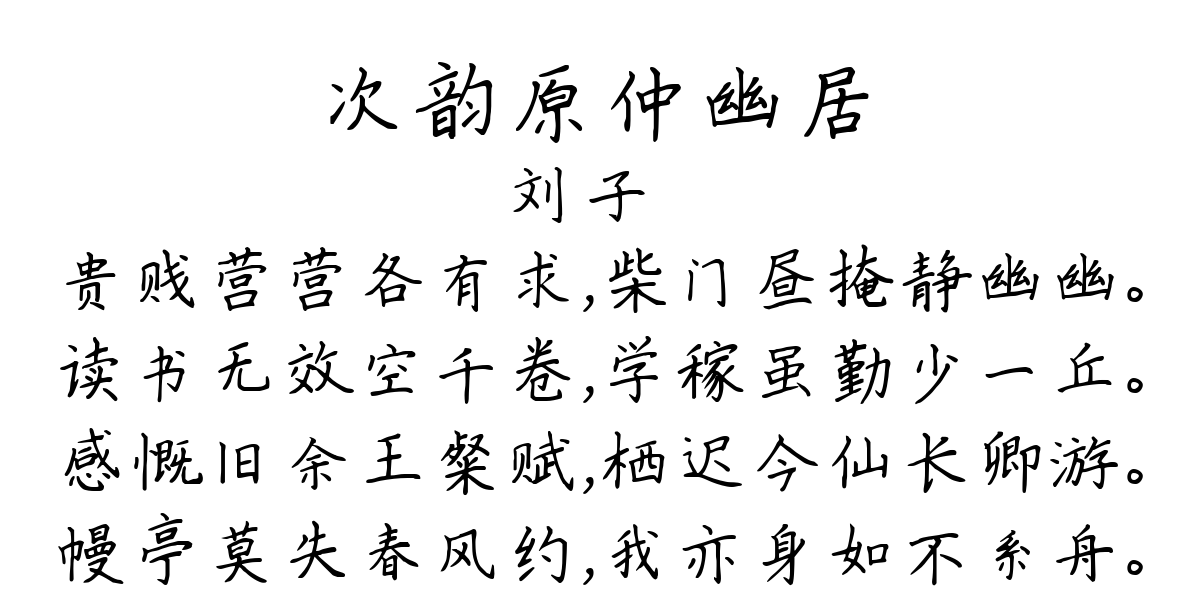 次韵原仲幽居
刘子
贵贱营营各有求,柴门昼掩静幽幽。
读书无效空千卷,学稼虽勤少一丘。
感慨旧余王粲赋,栖迟今仙长卿游。
幔亭莫失春风约,我亦身如不系舟。